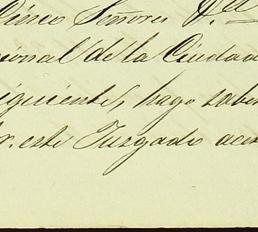 Cinco Señores D.
cional de la Ciudad
siguiente, hago saber
r. este Juzgado acor